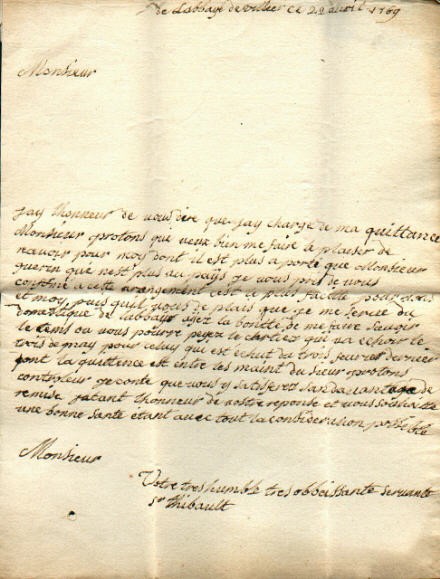 De Labbaye de villier ce 22 avril 1769
Monsieur
jay lhonneur de vous dire que jay charge de ma quittance
Monsieur protons que veux bien me faire le plaisir de
recevoir pour moy dont il est plus a porte que Monsieur
guerin que nest plus au pays je vous pris de vous
conforme a cette arangement cest le plus facille pour vous
et moy puis quil vous de plais que je me serve du
domestique de labbaye ayez la bonté de me faire savoir
le tems ou vous pouvez payez le cartier qui va echoir le
trois de may pour celuy qui est echut du trois fevrier dernier
dont la quittance est entre les maint du sieur protons
controleur je conte que vous y satiserez san davantage de
remise jatant lhonneur de vostre reponse et vous souhaitte
une bonne santé étant avec tout la consideration possible
Monsieur
Votre tres humble tres obbeissante servante
sr thibault